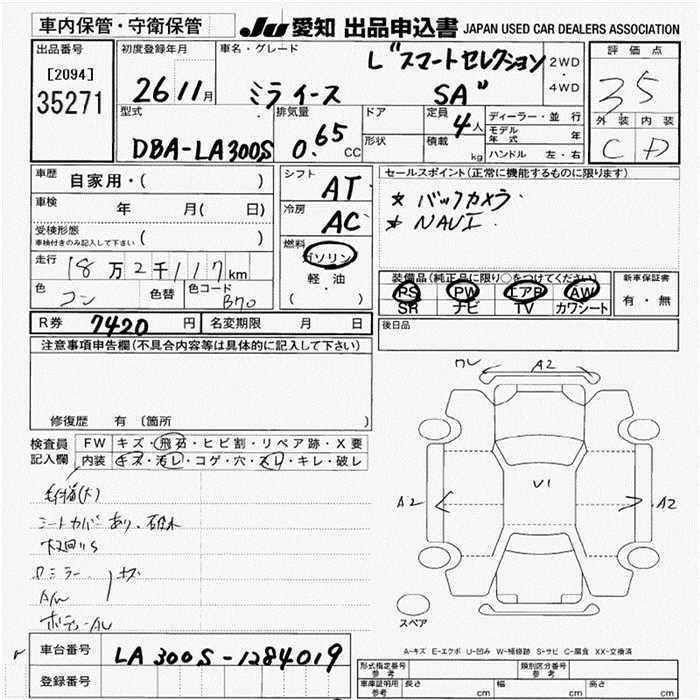 車内保管・守衛保管
JU 愛知 出品申込書 JAPAN USED CAR DEALERS ASSOCIATION
出品番号 初度登録年月 車名・グレード 評価点
[2094] 35271
26 11月
ミライース L"スマートセレクション SA"
2WD・4WD
35
外装 内装
C D
型式 DBA-LA300S
排気量 0.65 CC
ドア
形状
定員 4人
積載 kg
ディーラー・並行
モデル年式 年
ハンドル 左・右
車歴 自家用・( )
車検 年 月( 日)
受検形態 車検付きのみ記入して下さい ( )
走行 18万2千117km
色 コン 色替 色コード B70
シフト AT
冷房 AC
燃料 ガソリン・軽油・( )
セールスポイント(正常に機能するものに限ります)
* バックカメラ
* NAVI
装備品(純正品に限り○をつけてください) 新車保証書
PS PW エアB AW 有・無
SR ナビ TV カワシート
R券 7420 円 名変期限 月 日
後日品
注意事項申告欄(不具合内容等は具体的に記入して下さい)
修復歴 有 〔箇所 〕
検査員記入欄
FW キズ・飛石・ヒビ割・リペア跡・X要
内装 キズ・汚レ・コゲ・穴・スレ・キレ・破レ
シートカバーあり
ミラー キズ
AW
ワレ A2
A2 U1 A2
スペア
A-キズ E-エクボ U-凹み W-補修跡 S-サビ C-腐食 XX-交換済
車台番号 LA300S-1284019
登録番号
形式指定番号 参考 類別区分番号 参考
車庫証明用 参考 長さ cm 幅 cm 高さ cm